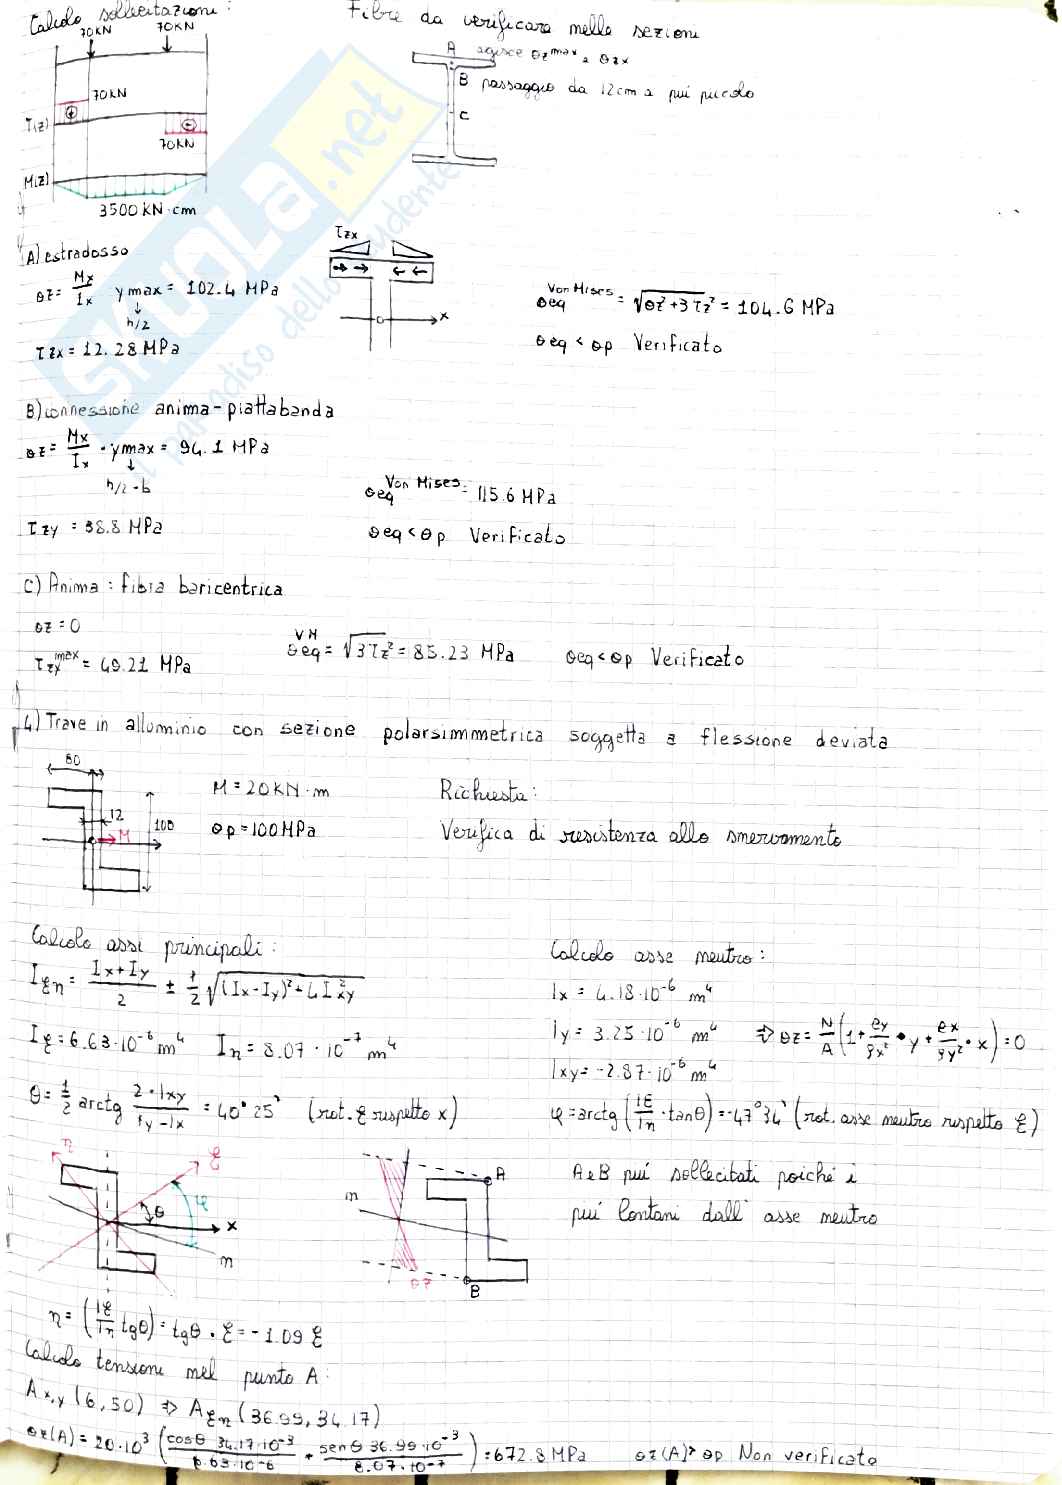 Calcolo sollecitazioni:
70KN 70KN
70KN
T(z)
70KN
M(z)
3500 KN·cm
Fibre da verificare nelle sezioni
A agisce σz^max e σzx
B passaggio da 12cm a più piccolo
C
SKUOLA.net
il paradiso dello studente
A) estradosso
σz = Mx/Ix ymax = 102.4 MPa
h/2
τzx = 12.28 MPa
τzx
x
σeq^Von Mises = √(σz²+3τz²) = 104.6 MPa
σeq < σp Verificato
B) connessione anima-piattabanda
σz = Mx/Ix · ymax = 94.1 MPa
h/2 - b
τzy = 38.8 MPa
σeq^Von Mises = 115.6 MPa
σeq < σp Verificato
C) Anima: fibra baricentrica
σz = 0
τzy^max = 49.21 MPa
σeq^VM = √(3τz²) = 85.23 MPa σeq < σp Verificato
4) Trave in alluminio con sezione polarsimmetrica soggetta a flessione deviata
80
12
100
M
M = 20KN·m
σp = 100MPa
Richiesta:
Verifica di resistenza allo snervamento
Calcolo assi principali:
Iξη = (Ix+Iy)/2 ± 1/2 √((Ix-Iy)²+4I²xy)
Iξ = 6.63·10⁻⁶ m⁴ Iη = 8.07·10⁻⁷ m⁴
θ = 1/2 arctg (2·Ixy)/(Iy-Ix) = 40°25' (rot. ξ rispetto x)
Calcolo asse neutro:
Ix = 4.18·10⁻⁶ m⁴
Iy = 3.25·10⁻⁶ m⁴ ⇒ σz = N/A (1 + ey/ρx² · y + ex/ρy² · x) = 0
Ixy = -2.87·10⁻⁶ m⁴
φ = arctg (Iξ/Iη · tanθ) = -47°34' (rot. asse neutro rispetto ξ)
η ξ φ θ x n
n A σz B
A e B più sollecitati poiché i
più lontani dall'asse neutro
η = (Iξ/Iη tgθ) = tgθ · ξ = -1.09 ξ
Calcolo tensione nel punto A:
Ax,y (6,50) ⇒ Aξη (36.99, 34.17)
σz(A) = 20·10³ (cosθ 34.17·10⁻³/6.63·10⁻⁶ + senθ 36.99·10⁻³/8.07·10⁻⁷) = 672.8 MPa σz(A) > σp Non verificato